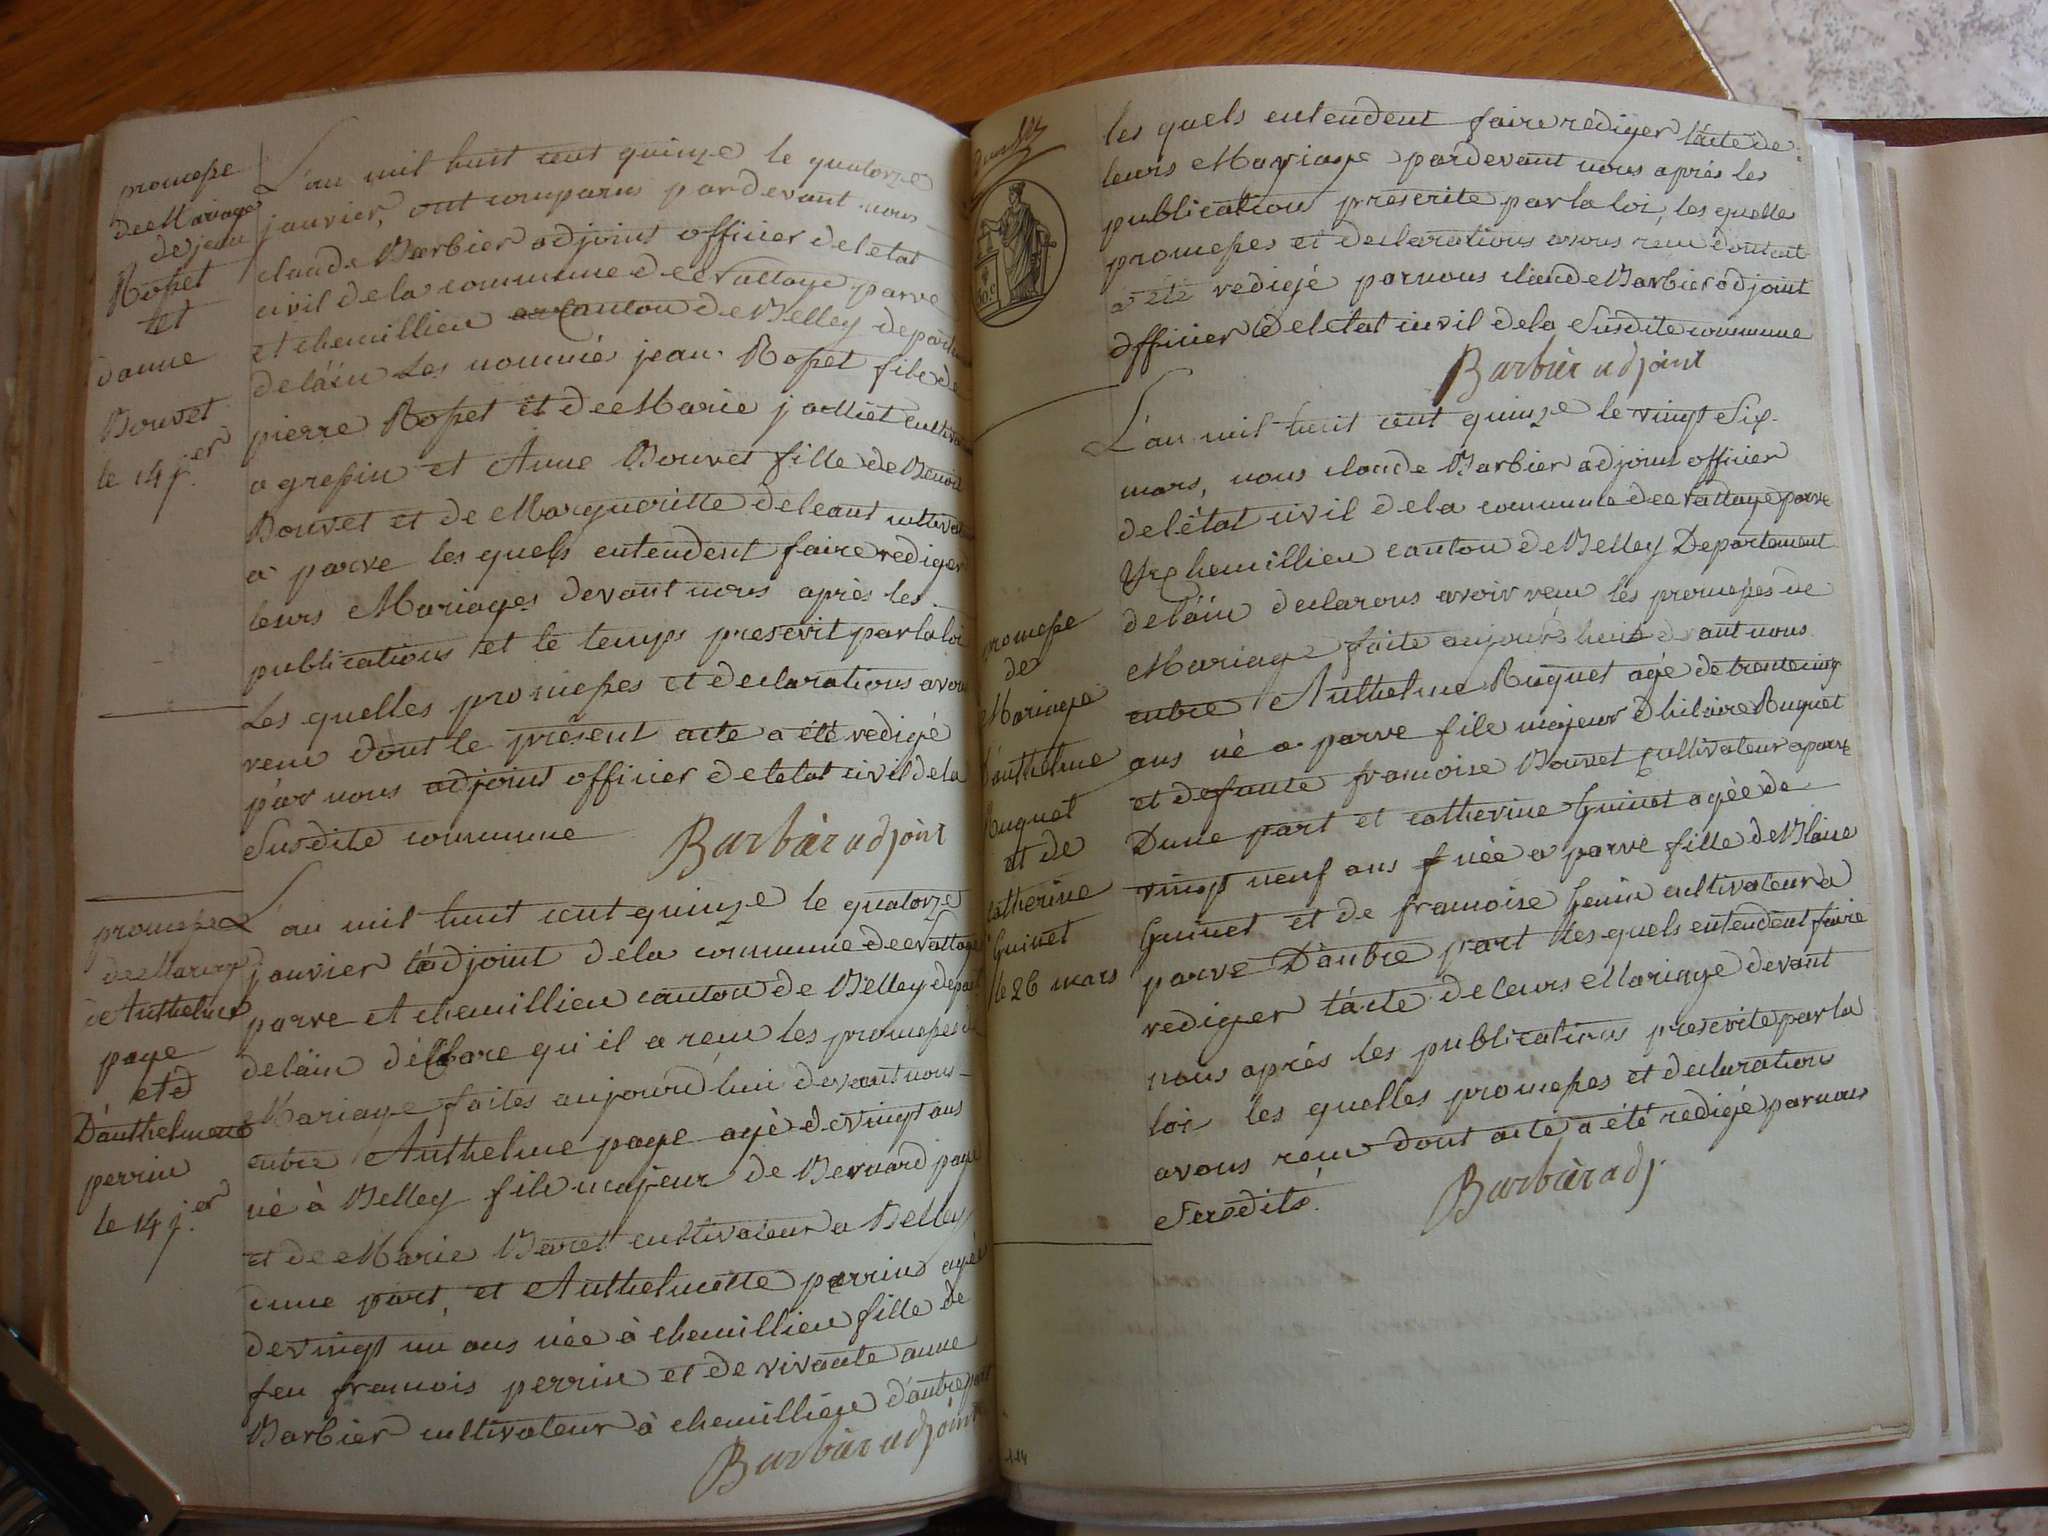 promesse
de Mariage
de jean
Rosset
et
danne
Bouvet
le 14 j.er
L'an mil huit cent quinze le quatorze
janvier, ont comparus pardevant nous
claude Barbier adjoint officier de letat
civil de la commune de parve
et chemillieu canton de Belley departem
de láin Les nommés jean Rosset fils de
pierre Rosset et de Marie jolliet cultiva
a gressin et Anne Bouvet fille de Benoit
Bouvet et de Margueritte deleant cultiva
a parve les quels entendent faire rediger
leurs Mariages devant nous après les
publications et le temps prescrit par la loi
Les quelles promesses et declarations avons
recu dont le présent acte a été redigé
par nous adjoint officier de letat civil de la
Susdite commune
Barbier adjoint
promesse
de Mariage
de Anthelme
page
et d
D'anthelmette
perrin
le 14 j.er
L'an mil huit cent quinze le quatorze
janvier l'adjoint de la commune de
parve et chemillieu canton de Belley depart
de láin déclare qu'il a recu les promesses de
Mariage faites aujourd'hui devant nous
entre Anthelme page agé de vingt ans
né à Belley fils majeur de Bernard page
et de Marie Baret cultivateur a Belley
dune part, et Anthelmette perrin agée
de vingt un ans née à chemillieu fille de
feu francois perrin et de vivante anne
Barbier cultivateur à chemillieu d'autre part
Barbier adjoint
les quels entendent faire rediger l'acte de
leurs Mariage pardevant nous après les
publications prescrite par la loi, les quelles
promesses et declarations avons recu dont acte
a été redigé par nous claude Barbier adjoint
officier de letat civil de la Susdite commune
Barbier adjoint
promesse
de
Mariage
d'anthelme
Ruguet
et de
catherine
Guinet
le 26 mars
L'an mil huit cent quinze le vingt Six
mars, nous claude Barbier adjoint officier
de létat civil de la commune de parve
chemillieu canton de Belley Departement
de láin declarons avoir recu les promesses de
Mariage faite aujourd'hui devant nous
entre Anthelme Ruguet agé de trente cinq
ans né a parve fils majeur d'hilaire Ruguet
et defunte francoise Bouvet cultivateur a parve
Dune part et catherine Guinet agée de
vingt neuf ans née a parve fille de Blaise
Guinet et de francoise Genin cultivateur a
parve D'autre part les quels entendent faire
rediger l'acte de leurs Mariage devant
nous après les publications prescrite par la
loi les quelles promesses et declarations
avons recu dont acte a été redigé par nous
Susdits.
Barbier adj